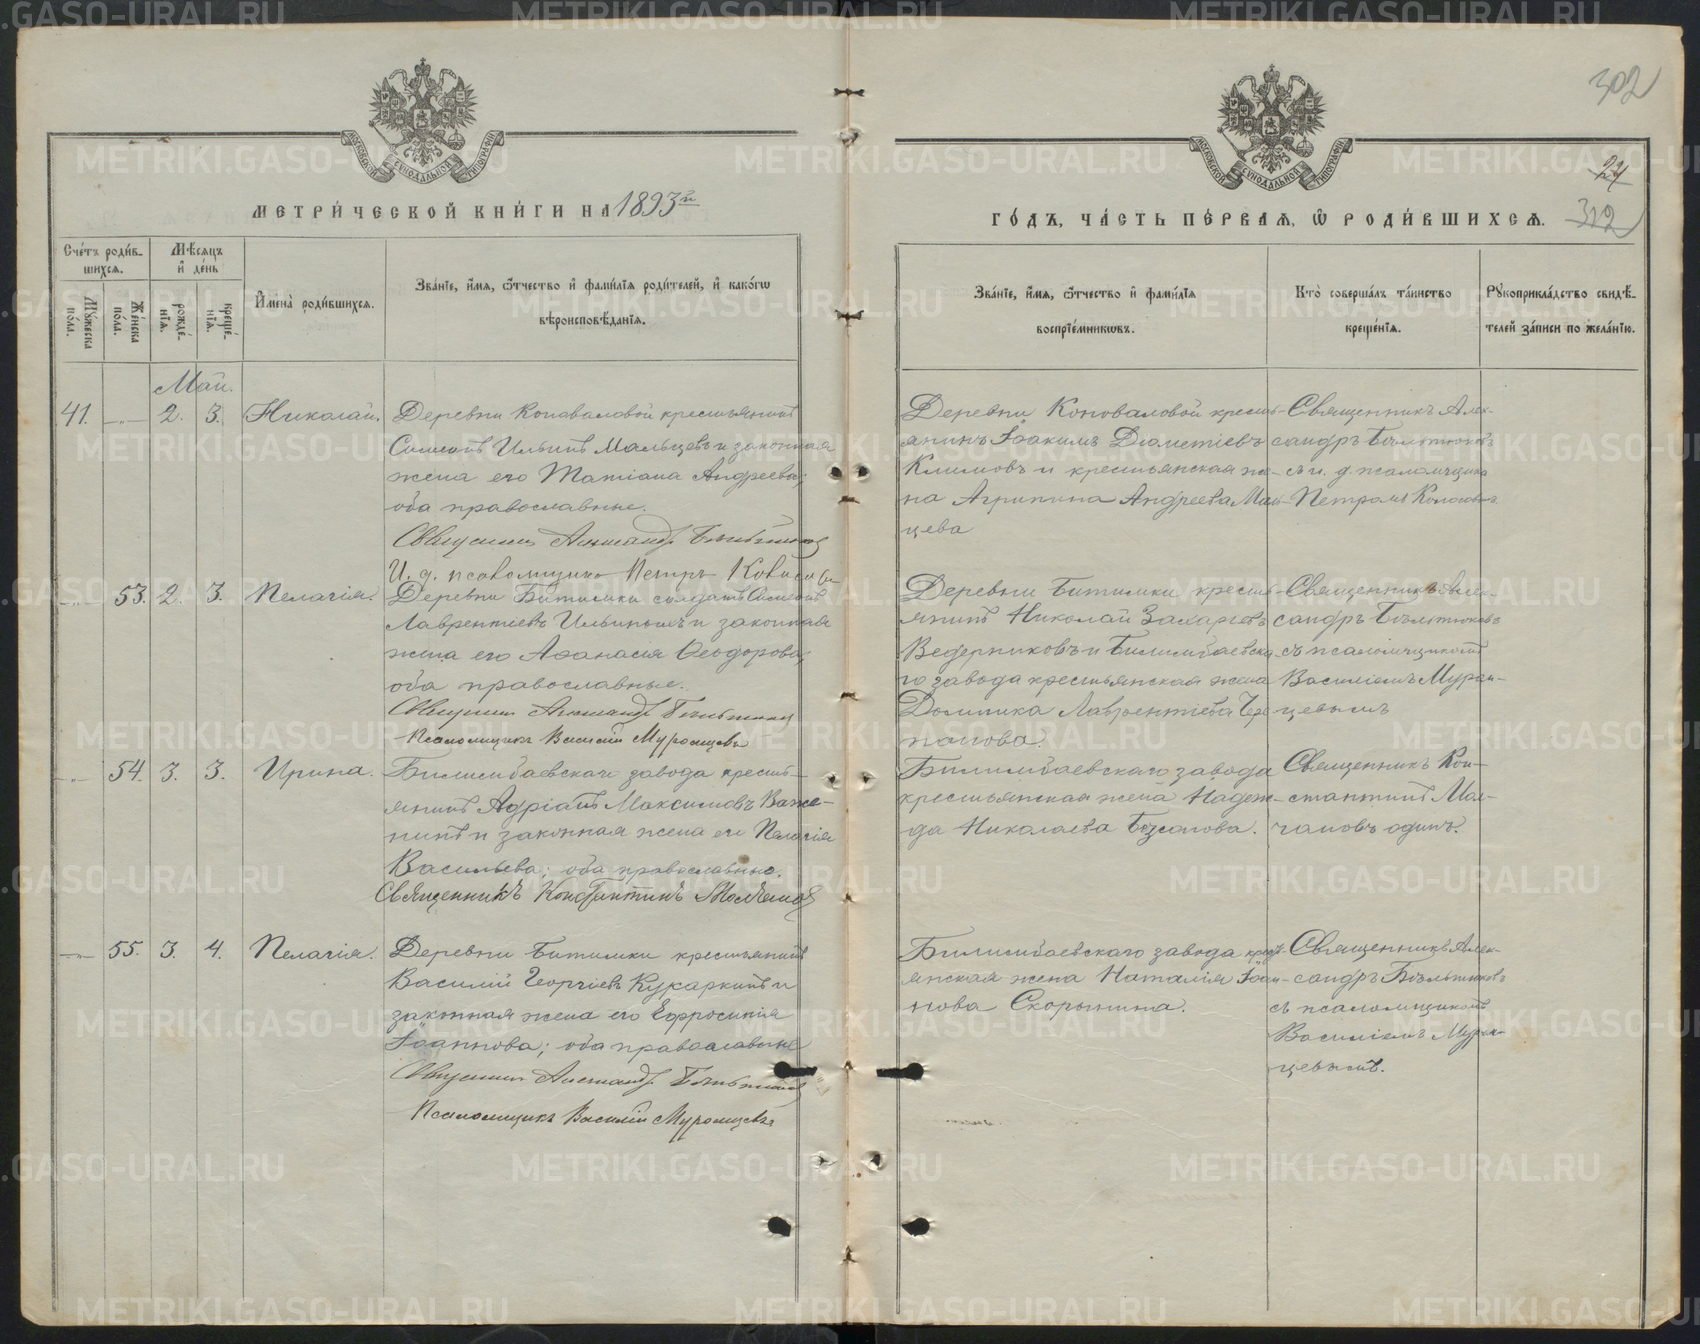 302
24
312
МОСКОВСКОЙ СУНОДАЛЬНОЙ ТИПОГРАФІИ
МОСКОВСКОЙ СУНОДАЛЬНОЙ ТИПОГРАФІИ
МЕТРИ́ЧЕСКОЙ КНИ́ГИ НА 1893й
ГО́ДЪ, ЧА́СТЬ ПЕ́РВАЯ, Ѡ҆ РОДИ́ВШИХСѦ.
Сче́тъ роди́в-
шихсѧ.
Мѣ́сѧцъ
и҆ де́нь
Мꙋ́жеска
по́ла.
Же́нска
по́ла.
рожде́-
нїѧ.
креще́-
нїѧ.
И҆мена̀ роди́вшихсѧ.
Зва́нїе, и҆́мѧ, ѻ҆́тчество и҆ фами́лїѧ роди́телей, и҆ како́гѡ
вѣроисповѣ́данїѧ.
Зва́нїе, и҆́мѧ, ѻ҆́тчество и҆ фами́лїѧ
воспрїе́мникѡвъ.
Кто̀ соверша́лъ та́инство
креще́нїѧ.
Рꙋкоприкла́дство свидѣ́-
телей за́писи по жела́нїю.
Май.
41. —„— 2. 3. Николай.
Деревни Коноваловой крестьянинъ
Симеонъ Ильинъ Мальцевъ и законная
жена его Татіана Андреева;
оба православные.
Священникъ Александръ Бѣльтюковъ
И. д. псаломщика Петръ
Деревни Коноваловой кресть-
янинъ Іоакимъ Діомтіевъ
Климовъ и крестьянская же-
на Агрипина Андреева Маль-
цева
Священникъ Алек-
сандръ Бѣльтюковъ
съ и. д. псаломщика
Петромъ
—„— 53. 2. 3. Пелагія.
Деревни Битимки солдатъ Симеонъ
Лаврентіевъ Ильиныхъ и законная
жена его Аѳанасія Ѳеодорова;
оба православные.
Священникъ Александръ Бѣльтюковъ
Псаломщикъ Василій Муромцевъ
Деревни Битимки кресть-
янинъ Николай Захаріевъ
Ведерниковъ и Билимбаевска-
го завода крестьянская жена
Домника Лаврентіева Чере-
панова.
Священникъ Алек-
сандръ Бѣльтюковъ
съ псаломщикомъ
Василіемъ Муром-
цевымъ
—„— 54. 3. 3. Ирина.
Билимбаевскаго завода кресть-
янинъ Адріанъ Максимовъ Важе-
нинъ и законная жена его Пелагія
Васильева; оба православные.
Священникъ Константинъ Молчановъ
Билимбаевскаго завода
крестьянская жена Надеж-
да Николаева Бѣзсонова.
Священникъ Кон-
стантинъ Мол-
чановъ одинъ.
—„— 55. 3. 4. Пелагія.
Деревни Битимки крестьянинъ
Василій Георгіевъ Кукаркинъ и
законная жена его Ефросинія
Іоаннова; оба православные
Священникъ Александръ Бѣльтюковъ
Псаломщикъ Василій Муромцевъ
Билимбаевскаго завода крест-
янская жена Наталія Іоан-
нова Скорынина.
Священникъ Алек-
сандръ Бѣльтюковъ
съ псаломщикомъ
Василіемъ Муром-
цевымъ.
METRIKI.GASO-URAL.RU